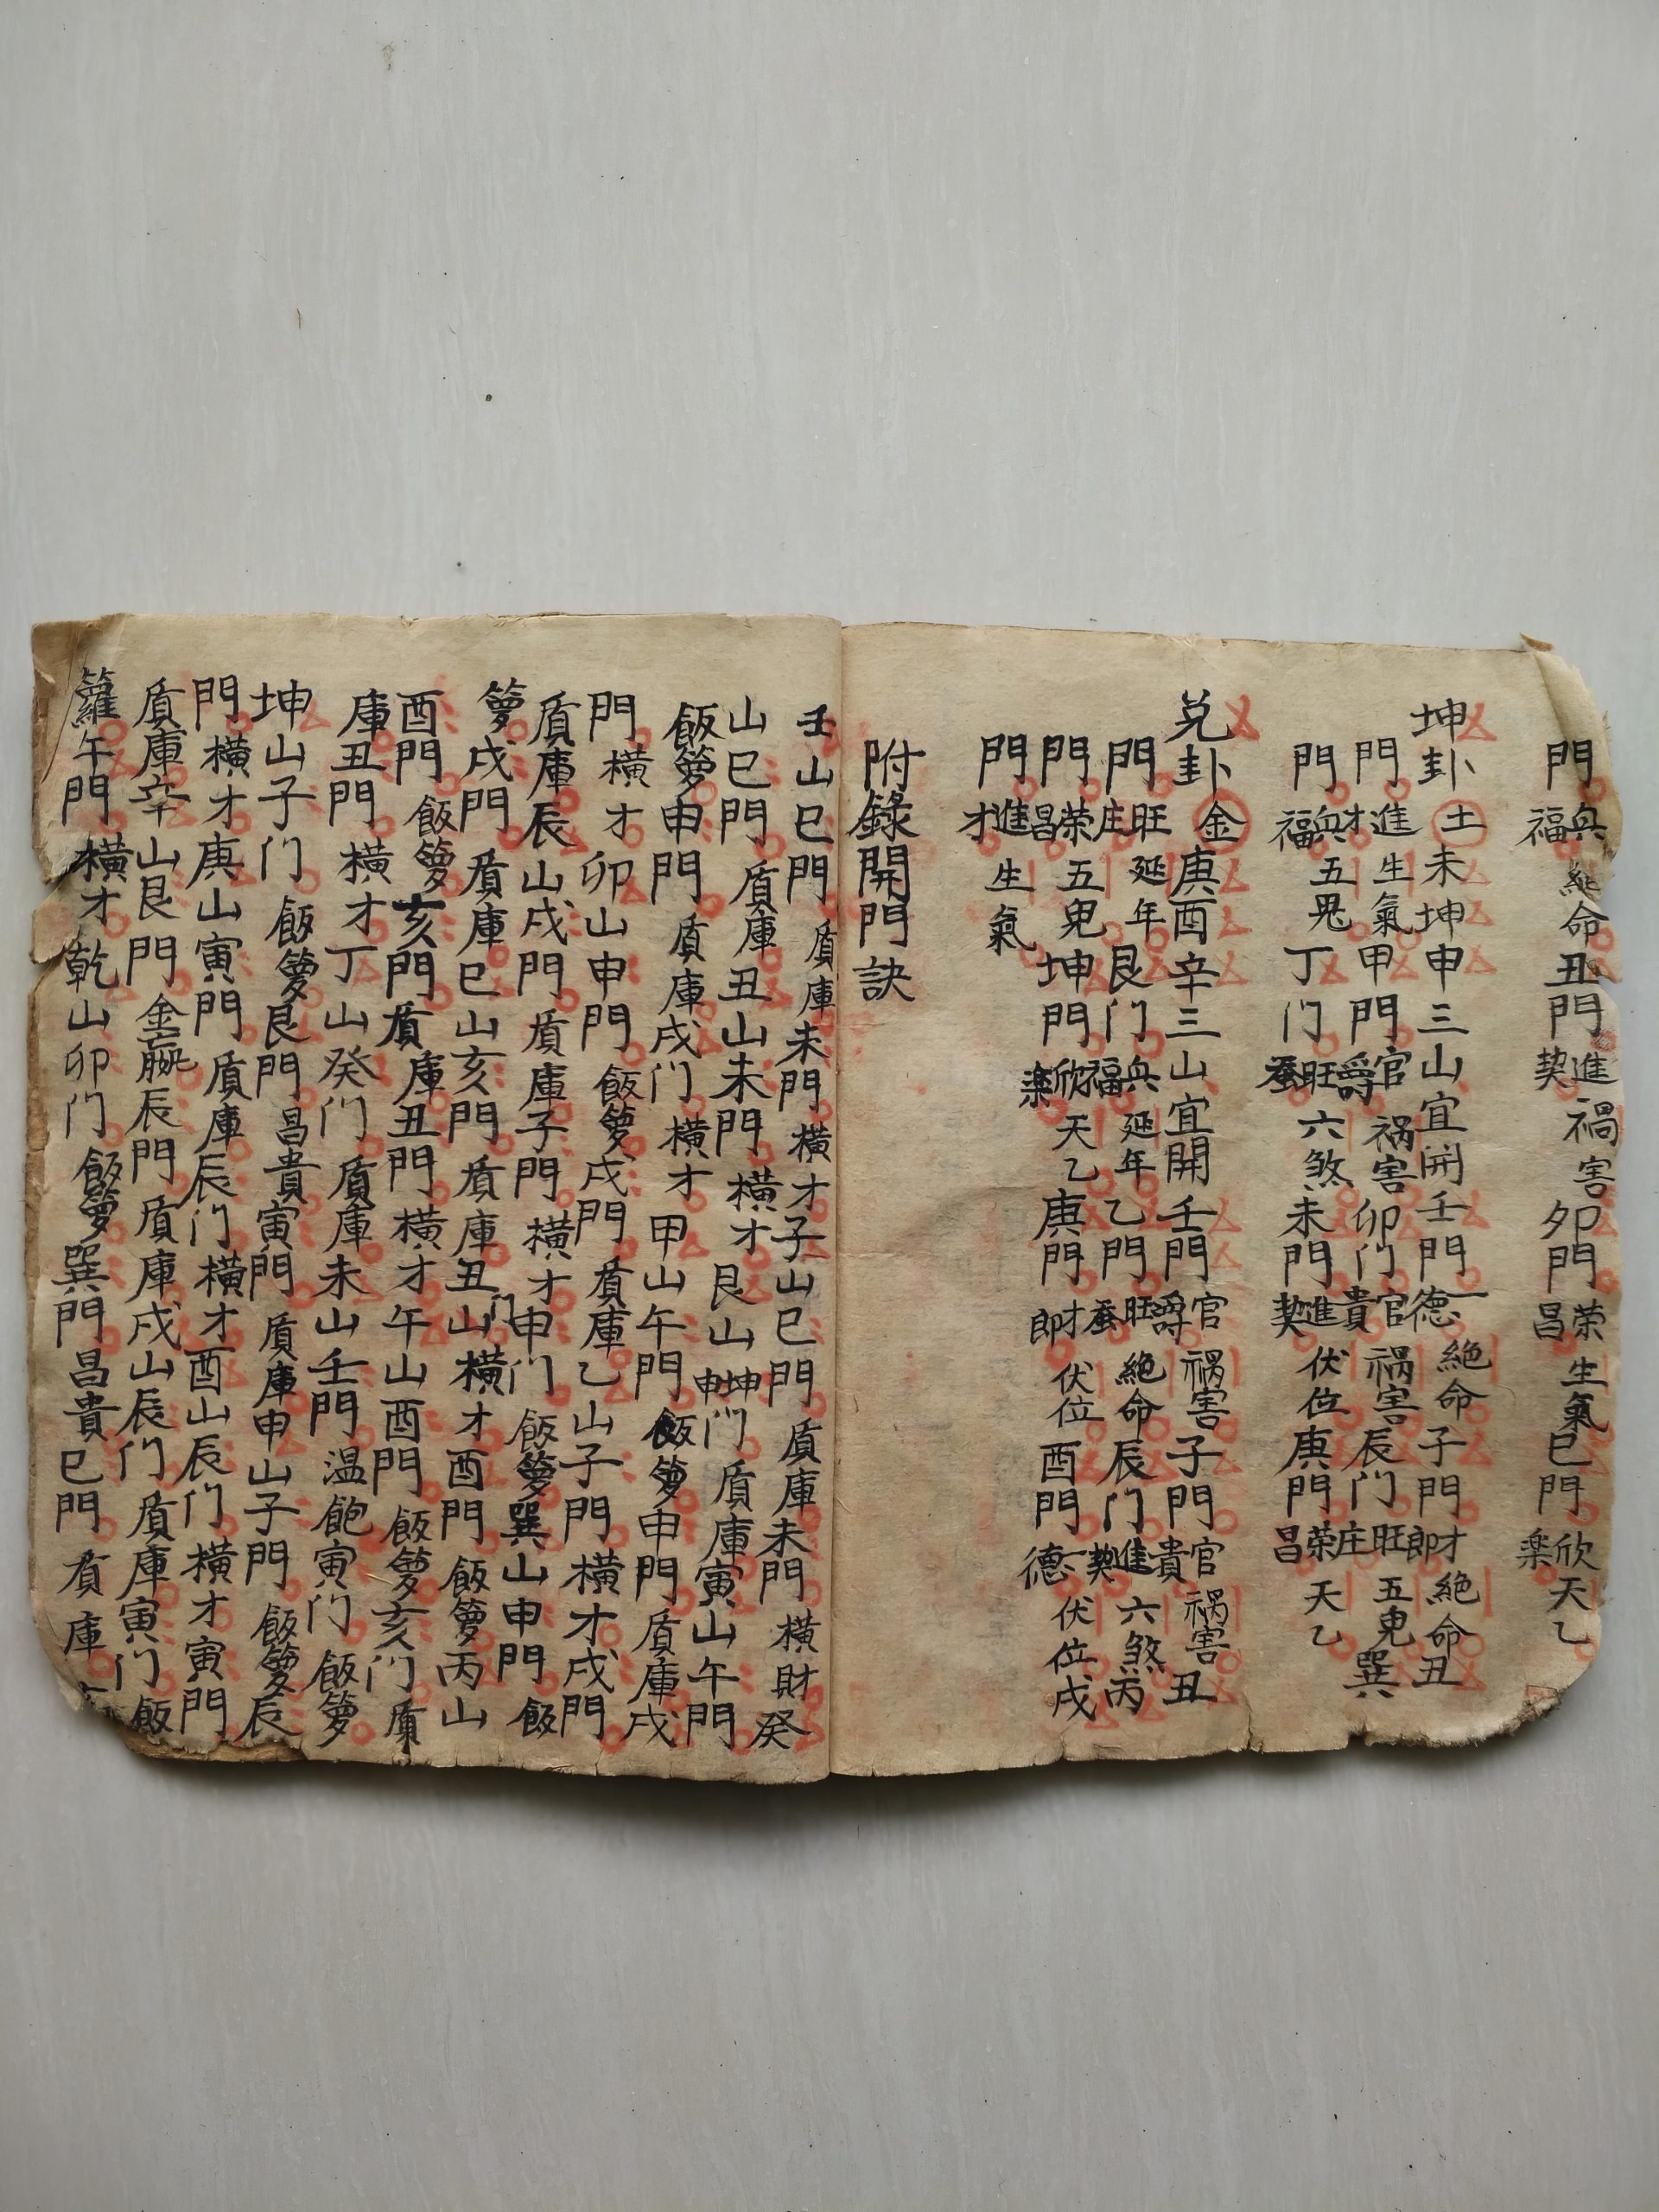 門兵福絶命丑門進契禍害夘門荣昌生氣巳門欣楽天乙
坤卦土未坤申三山宜開壬門一德絶命子門才郎絶命丑
門進才生氣甲門官爵禍害卯门官貴禍害辰门旺庄五鬼巽
門兵福五鬼丁门旺蚕六煞未門進契伏位庚門荣昌天乙
兑卦金庚酉辛三山宜開壬門官爵禍害子門官貴禍害丑
門旺庄延年艮门兵福延年乙門旺蚕絶命辰门進契六煞丙
門荣昌五鬼坤門欣楽天乙庚門才郎伏位酉門一德伏位戌
門進才生氣
附錄開門訣
壬山巳門盾庫未門橫才子山巳門盾庫未門橫財癸
山巳門盾庫丑山未門橫才艮山坤申门盾庫寅山午門
飯箩申門盾庫戌门橫才甲山午門飯箩申門盾庫戌
門橫才卯山申門飯箩戌門盾庫乙山子門橫才戌門
盾庫辰山戌門盾庫子門橫才申门飯箩巽山申門飯
箩戌門盾庫巳山亥門盾庫丑门山橫才酉門飯箩丙山
酉門飯箩亥門盾庫丑門橫才午山酉門飯箩亥门盾
庫丑門橫才丁山癸门盾庫未山壬門温飽寅门飯箩
坤山子门飯箩艮門昌貴寅門盾庫申山子門飯箩辰
門橫才庚山寅門盾庫辰门橫才酉山辰门橫才寅門
盾庫辛山艮門辰門盾庫戌山辰门盾庫寅门飯
籮午門橫才乾山卯门飯箩巽門昌貴巳門盾庫